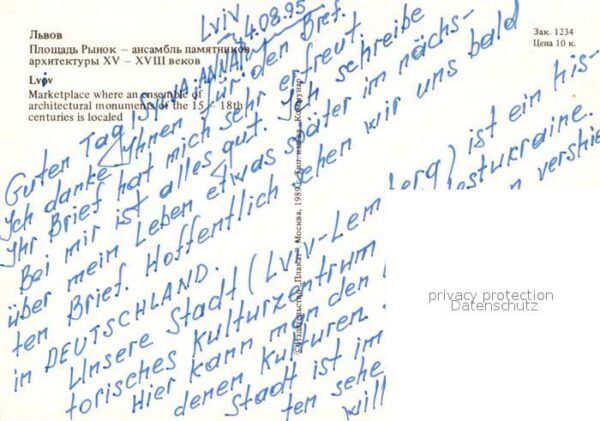 Львов
Площадь Рынок – ансамбль памятников
архитектуры XV – XVIII веков
Lviv
Marketplace where an ensemble of
architectural monuments of the 15 – 18th
centuries is localed
Зак. 1234
Цена 10 к.
© Издательство „Плакат“ Москва, 1989
Lviv
4.08.95
Guten Tag, ANNA!
Ich danke Ihnen für den Brief.
Ihr Brief hat mich sehr erfreut.
Bei mir ist alles gut. Ich schreibe
über mein Leben etwas später im nächs-
ten Brief. Hoffentlich sehen wir uns bald
in DEUTSCHLAND.
Unsere Stadt (Lviv-Lemberg) ist ein his-
torisches Kulturzentrum estukraine.
Hier kann man den verschie
denen Kulturen
Stadt ist im
ten sehe
will
privacy protection
Datenschutz